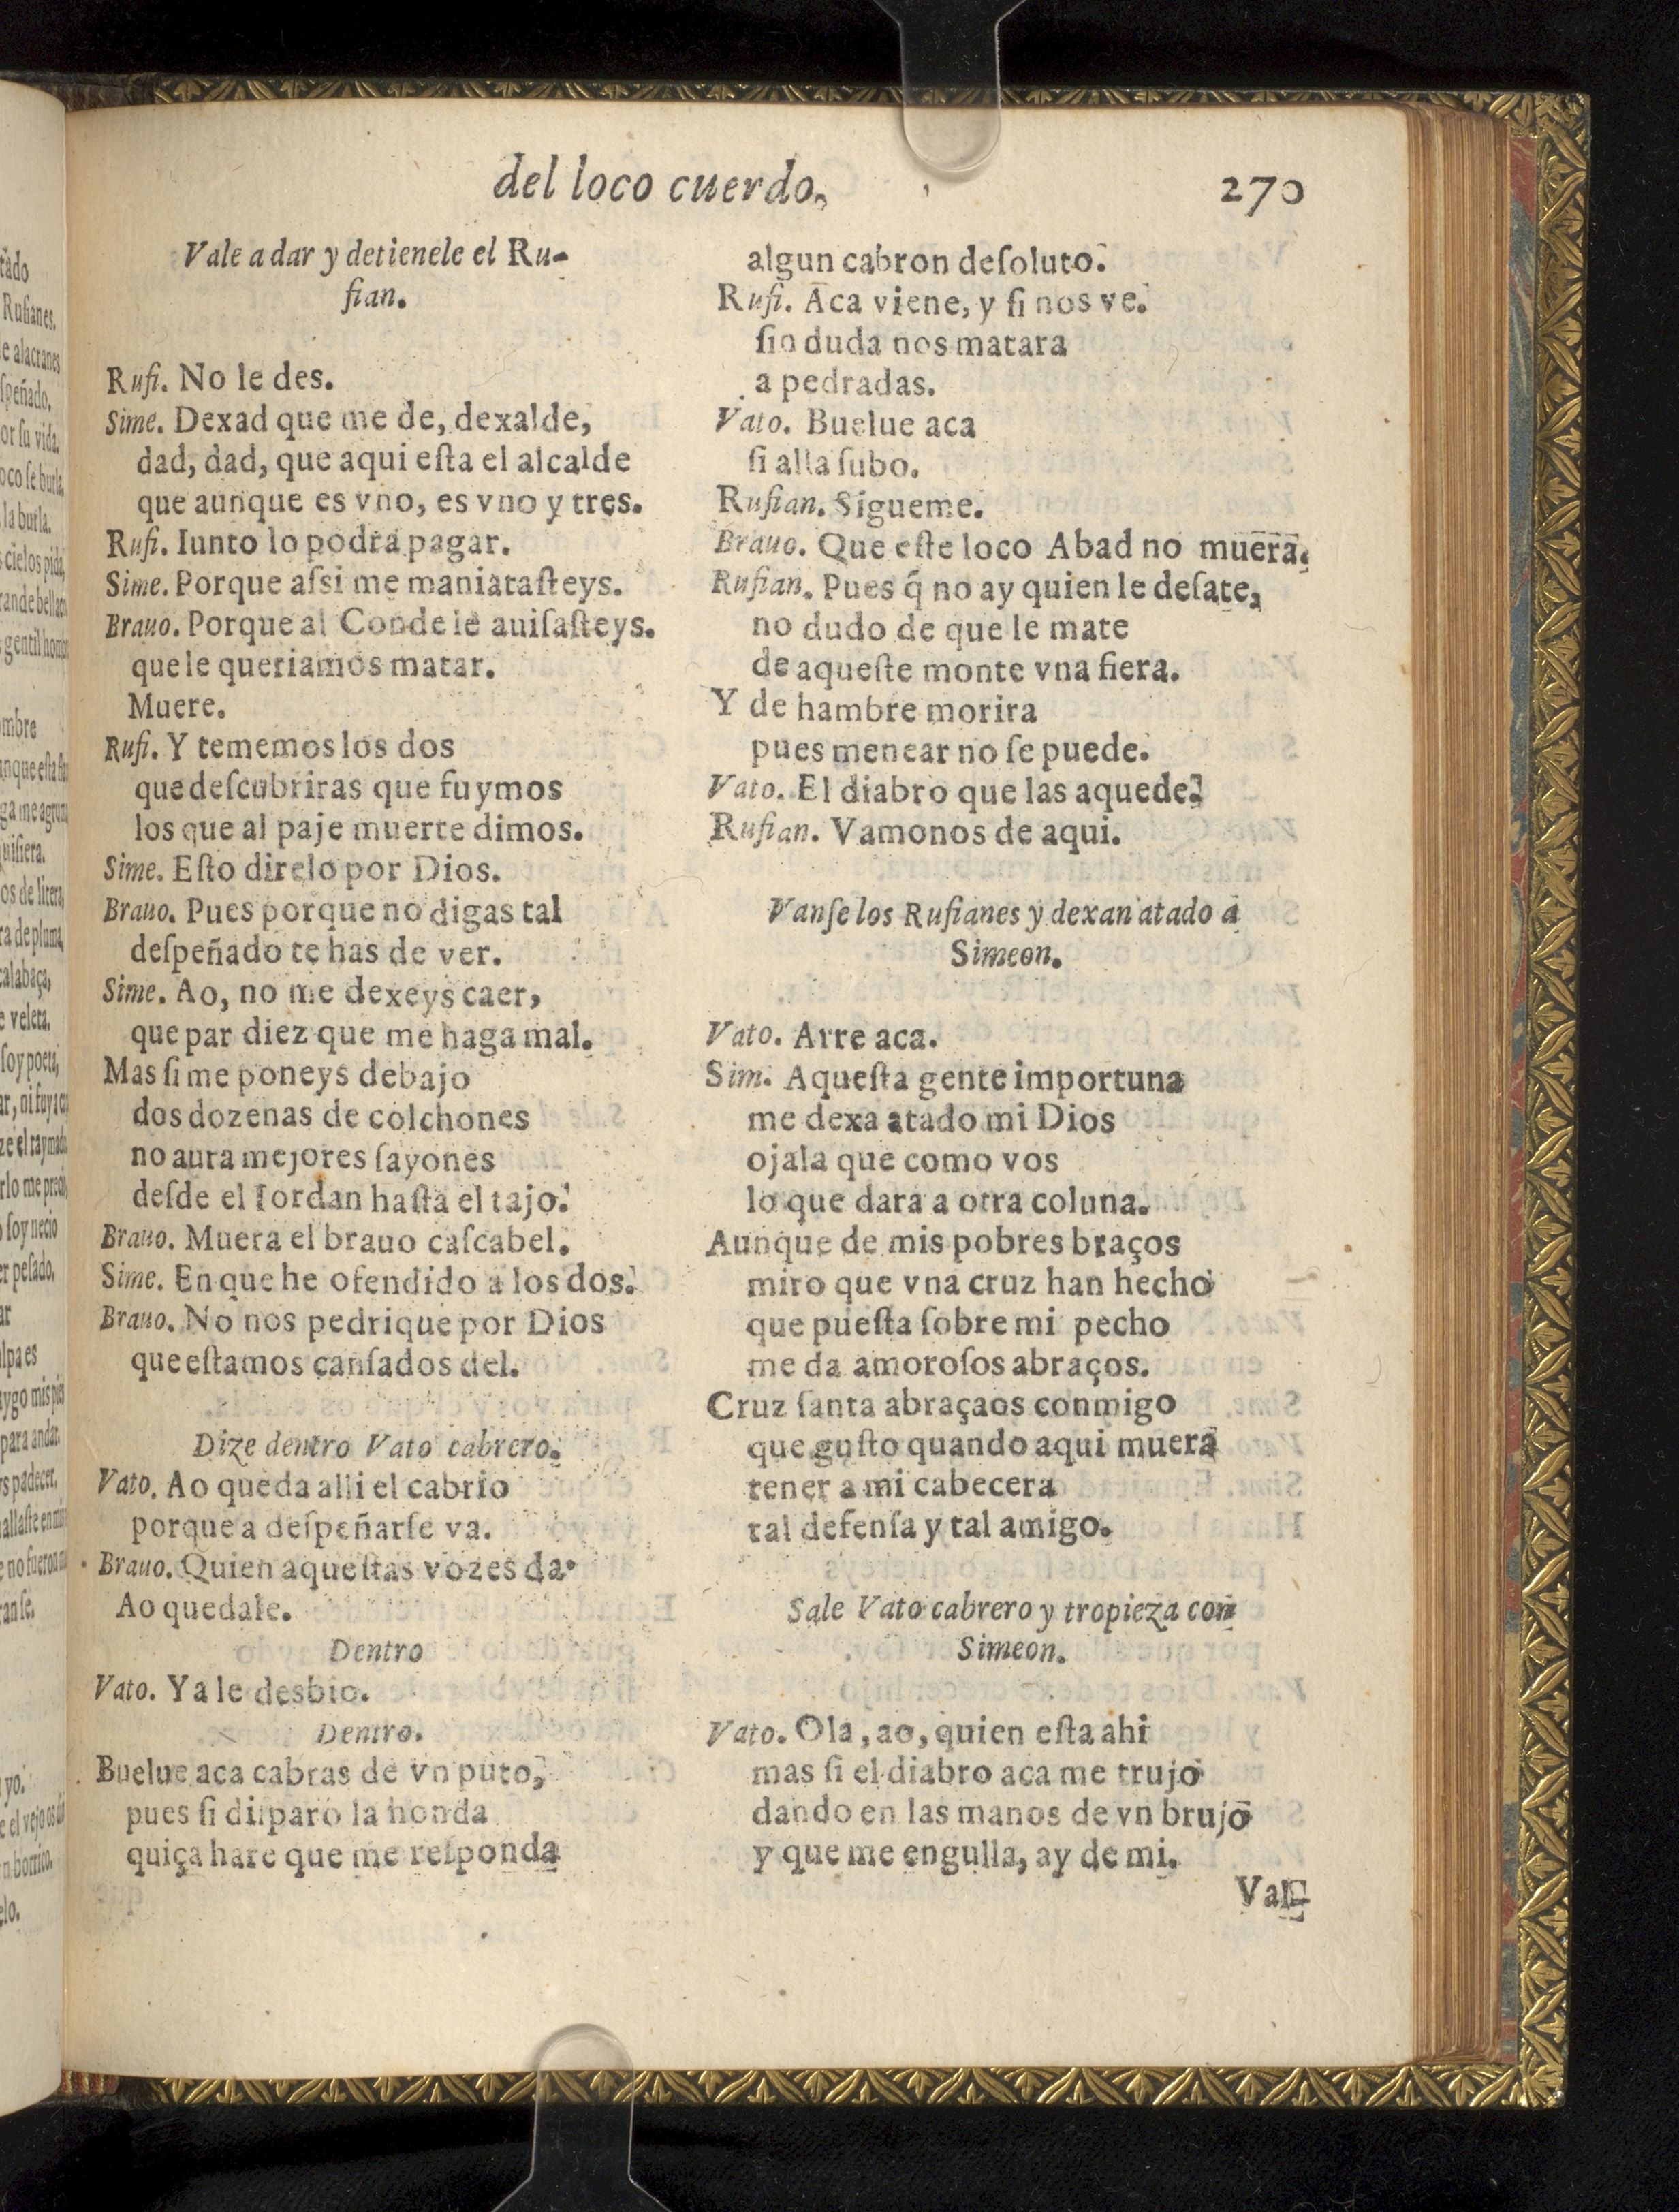 del loco cuerdo,
270
Vale a dar y detienele el Ru-
fian.
Rufi. No le des.
Sime. Dexad que me de, dexalde,
dad, dad, que aqui eſta el alcalde
que aunque es vno, es vno y tres.
Rufi. Iunto lo podra pagar.
Sime. Porque aſsi me maniataſteys.
Brauo. Porque al Conde le auiſaſteys.
que le queriamos matar.
Muere.
Rufi. Y tememos los dos
que deſcubriras que fuymos
los que al paje muerte dimos.
Sime. Eſto direlo por Dios.
Brauo. Pues porque no digas tal
deſpeñado te has de ver.
Sime. Ao, no me dexeys caer,
que par diez que me haga mal.
Mas ſi me poneys debajo
dos dozenas de colchones
no aura mejores ſayones
deſde el Iordan haſta el tajo.
Brauo. Muera el brauo caſcabel.
Sime. En que he ofendido a los dos.
Brauo. No nos pedrique por Dios
que eſtamos canſados del.
Dize dentro Vato cabrero.
Vato. Ao queda alli el cabrio
porque a deſpeñarſe va.
Brauo. Quien aqueſtas vozes da.
Ao quedale.
Dentro
Vato. Ya le desbio.
Dentro.
Buelue aca cabras de vn puto,
pues ſi diſparo la honda
quiça hare que me reſponda
algun cabron deſoluto.
Rufi. Aca viene, y ſi nos ve.
ſin duda nos matara
a pedradas.
Vato. Buelue aca
ſi alla ſubo.
Rufian. Sigueme.
Brauo. Que eſte loco Abad no muera.
Rufian. Pues q̃ no ay quien le deſate,
no dudo de que le mate
de aqueſte monte vna fiera.
Y de hambre morira
pues menear no ſe puede.
Vato. El diabro que las aquede.
Rufian. Vamonos de aqui.
Vanſe los Rufianes y dexan atado a
Simeon.
Vato. Arre aca.
Sim. Aqueſta gente importuna
me dexa atado mi Dios
ojala que como vos
lo que dara a otra coluna.
Aunque de mis pobres braços
miro que vna cruz han hecho
que pueſta ſobre mi pecho
me da amoroſos abraços.
Cruz ſanta abraçaos conmigo
que guſto quando aqui muera
tener a mi cabecera
tal defenſa y tal amigo.
Sale Vato cabrero y tropieza con
Simeon.
Vato. Ola, ao, quien eſta ahi
mas ſi el diabro aca me trujo
dando en las manos de vn brujo
y que me engulla, ay de mi.
Val-